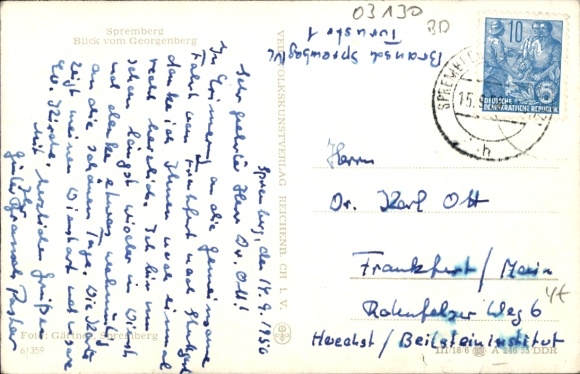 Spremberg
Blick vom Georgenberg
03130
BD
Bransch Spremberg N/L
Turnstr 1
10
DEUTSCHE
DEMOKRATISCHE REPUBLIK
SPREMBERG
15.9.
h
Spremberg, den 14.9.1956
Sehr geehrter Herr Dr. Ott!
In Erinnerung an die gemeinsame
Fahrt von Frankfurt nach Stuttgart
danke ich Ihnen noch einmal
recht herzlich. Ich bin nun
schon längst wieder im Dienst
und denke etwas wehmütig
an die schönen Tage. Die Karte
zeigt meinen Dienstort und unsere
Ev. Kirche. Mit herzlichen Grüßen
Ihr
Günter Bransch, Pfarrer
VEB VOLKSKUNSTVERLAG REICHENB. CH I. V.
Herrn
Dr. Karl Ott
Frankfurt/Main
Rotenfelser Weg 6
Hoechst/Beilsteininstitut
4€
Foto: Gärtner, Spremberg
6/359
III/18/6 A 246/55 DDR